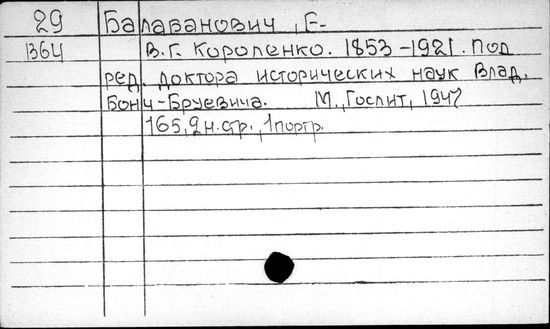 29 Балабанович, Е.
1364 В.Г. Короленко. 1853-1921. Под
ред. доктора исторических наук Влад.
Бонч-Бруевича. М., Гослит, 1947
165, 2 н. стр., 1 портр.